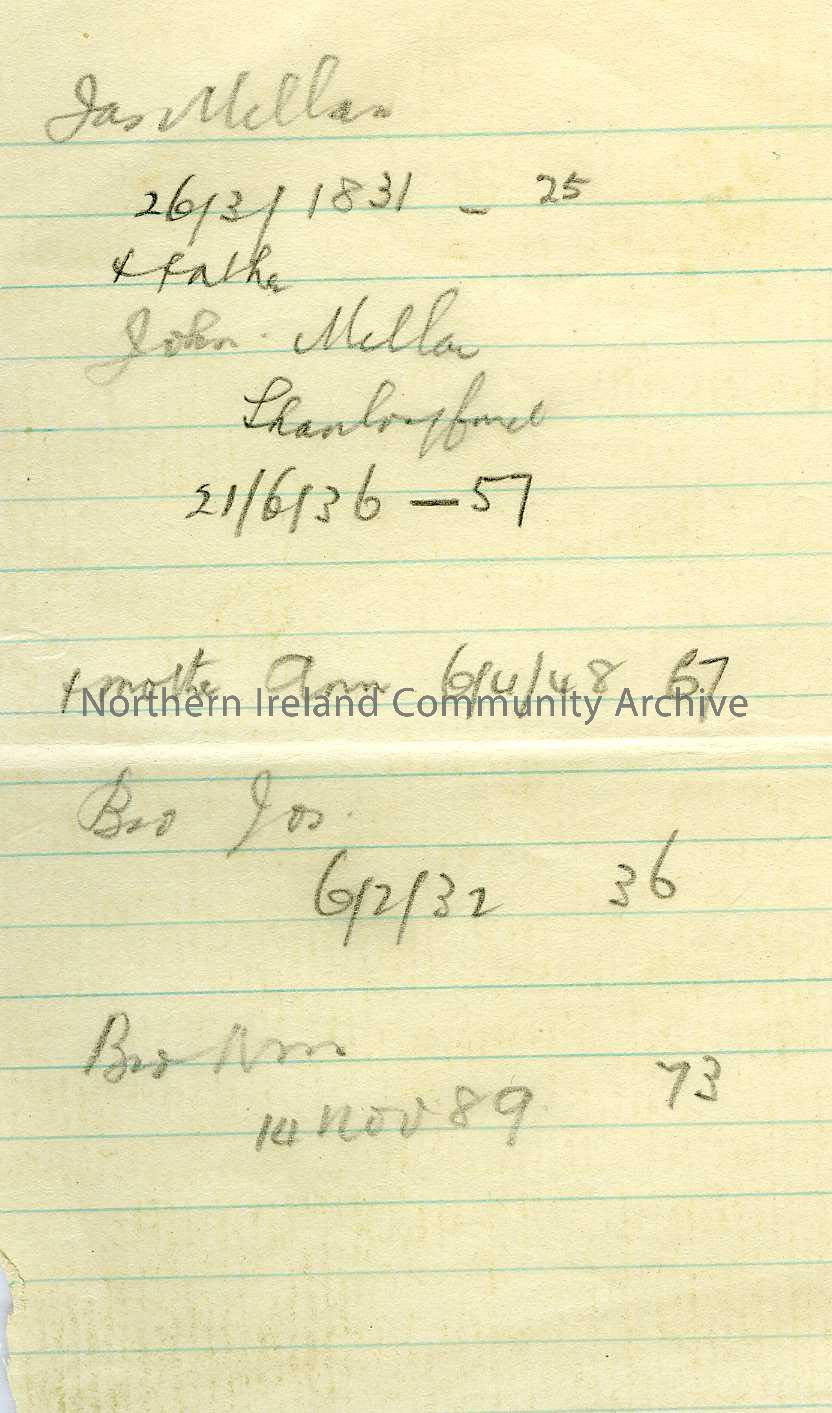 Jas Mellan
26/3/1831 - 25
& father
John Mellan
21/6/36 - 57
& mother Ann 6/4/48 67
Northern Ireland Community Archive
Bro Jos.
6/2/32 36
Bro
14 Nov 89 73